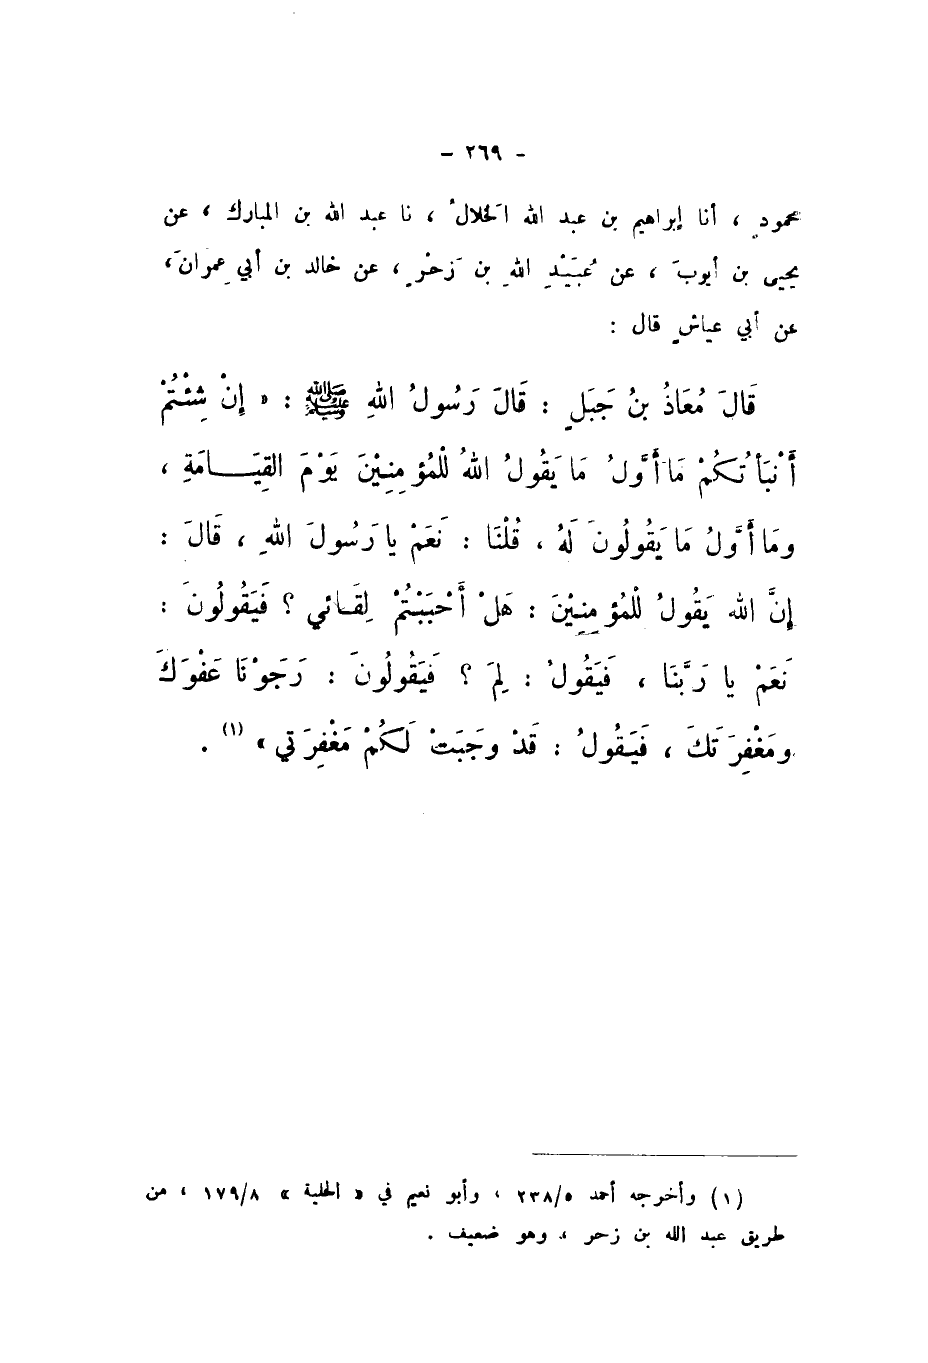 - ٢٦٩ -
محمودٍ ، أنا إبراهيم بن عبد الله الَخلالُ ، نا عبد الله بن المبارك ، عن
يحيى بن أيوبَ ، عن عُبَيْدِ اللهِ بن زَحْرٍ ، عن خالد بن أبي عمرانَ ،
عن أبي عياشٍ قال :
قَالَ مُعَاذُ بنُ جَبَلٍ : قَالَ رَسُولُ اللهِ ﷺ : « إِنْ شِئْتُمْ
أَنْبَأْتُكُمْ مَا أَوَّلُ مَا يَقُولُ اللهُ لْلمُؤمِنِيْنَ يَوْمَ القِيَـــامَةِ ،
ومَا أَوَّلُ مَا يَقُولُونَ لَهُ ، قُلْنَا : نَعَمْ يا رَسُولَ اللهِ ، قَالَ :
إِنَّ الله يَقُولُ لْلمُؤمِنِيْنَ : هَلْ أَحْبَبْتُمْ لِقَـائي ؟ فَيَقُولُونَ :
نَعَمْ يا رَبَّنَا ، فَيَقُولُ : لِمَ ؟ فَيَقُولُونَ : رَجَوْنَا عَفْوَكَ
ومَغْفِرَتَكَ ، فَيَـقُولُ : قَدْ وجَبَتْ لَكُمْ مَغْفِرَتي » (١) .
(١) وأخرجه أحمد ٢٣٨/٥ ، وأبو نعيم في « الحلية » ١٧٩/٨ ، من
طريق عبد الله بن زحر ، وهو ضعيف .